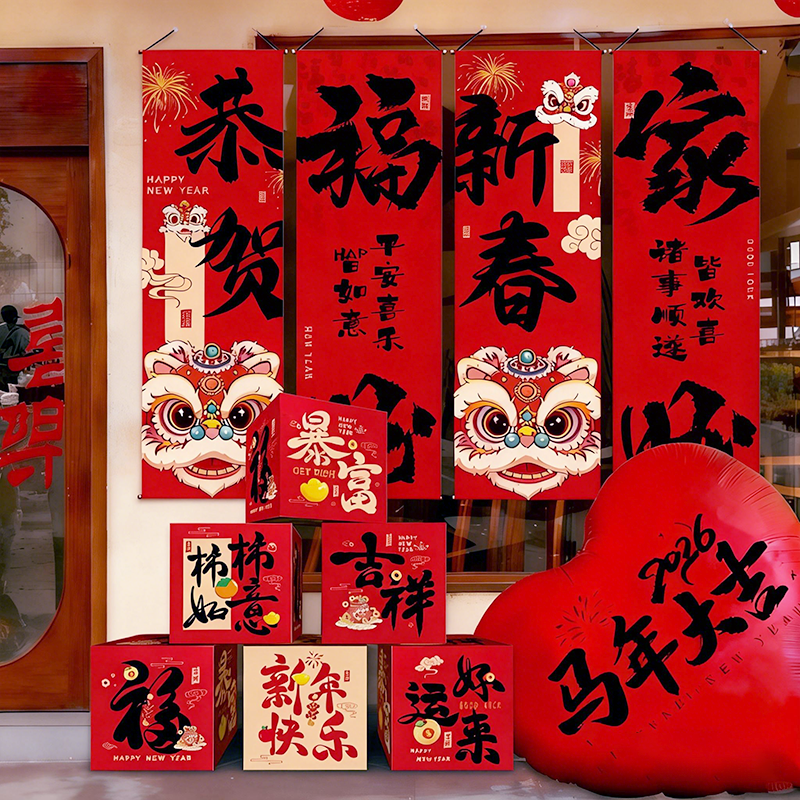 恭贺
HAPPY
NEW YEAR
福
平安喜乐
如意
新春
家
皆欢喜
诸事顺遂
GOOD LUCK
暴富
HAPPY
NEW YEAR
GET RICH
柿柿如意
吉祥
福
HAPPY NEW YEAR
新年快乐
好运来
GOOD LUCK
HAPPY
NEW YEAR
2026
马年大吉
HAPPY NEW YEAR